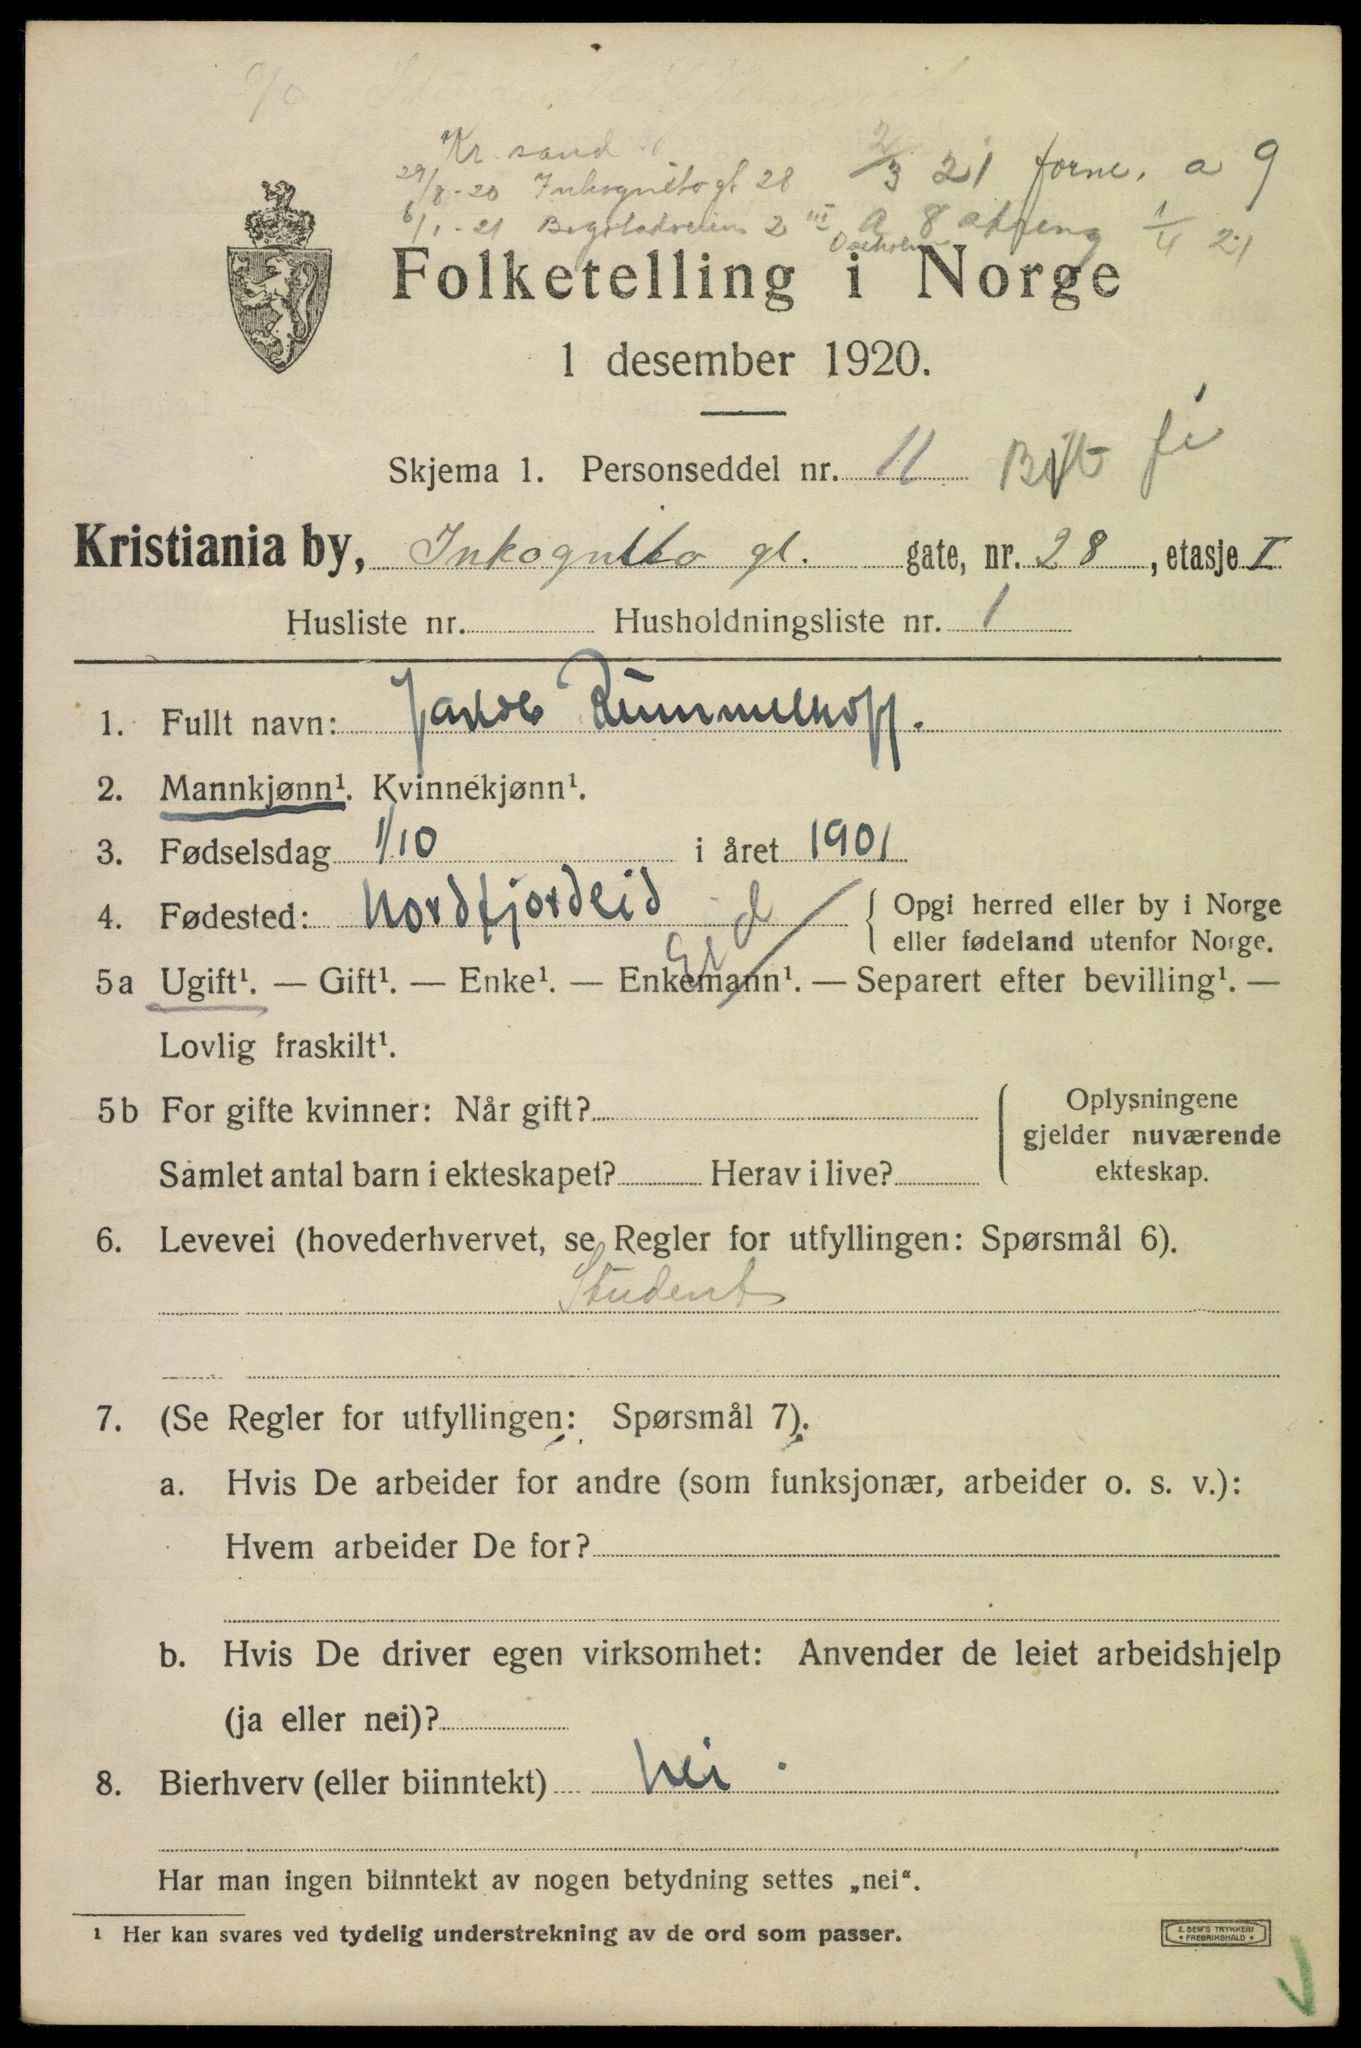 Kr. sand
29/8-20 Inkognito gt 28 2/3 21 forne. a 9
6/1-21 Bogstadveien 2 III a 8 1/4 21
Folketelling i Norge
1 desember 1920.
Skjema 1. Personseddel nr. 11
Kristiania by, Inkognito gt. gate, nr. 28, etasje I
Husliste nr. Husholdningsliste nr. 1
1. Fullt navn: Jakob Rummelhoff.
2. Mannkjønn¹. Kvinnekjønn¹.
3. Fødselsdag 1/10 i året 1901
4. Fødested: Nordfjordeid { Opgi herred eller by i Norge
eller fødeland utenfor Norge.
Eid
5a Ugift¹. — Gift¹. — Enke¹. — Enkemann¹. — Separert efter bevilling¹. —
Lovlig fraskilt¹.
5b For gifte kvinner: Når gift? { Oplysningene
gjelder nuværende
Samlet antal barn i ekteskapet? Herav i live? ekteskap.
6. Levevei (hovederhvervet, se Regler for utfyllingen: Spørsmål 6).
Student
7. (Se Regler for utfyllingen: Spørsmål 7).
a. Hvis De arbeider for andre (som funksjonær, arbeider o. s. v.):
Hvem arbeider De for?
b. Hvis De driver egen virksomhet: Anvender de leiet arbeidshjelp
(ja eller nei)?
8. Bierhverv (eller biinntekt) Nei.
Har man ingen biinntekt av nogen betydning settes „nei“.
¹ Her kan svares ved tydelig understrekning av de ord som passer.
E. SEM'S TRYKKERI
* FREDRIKSHALD *